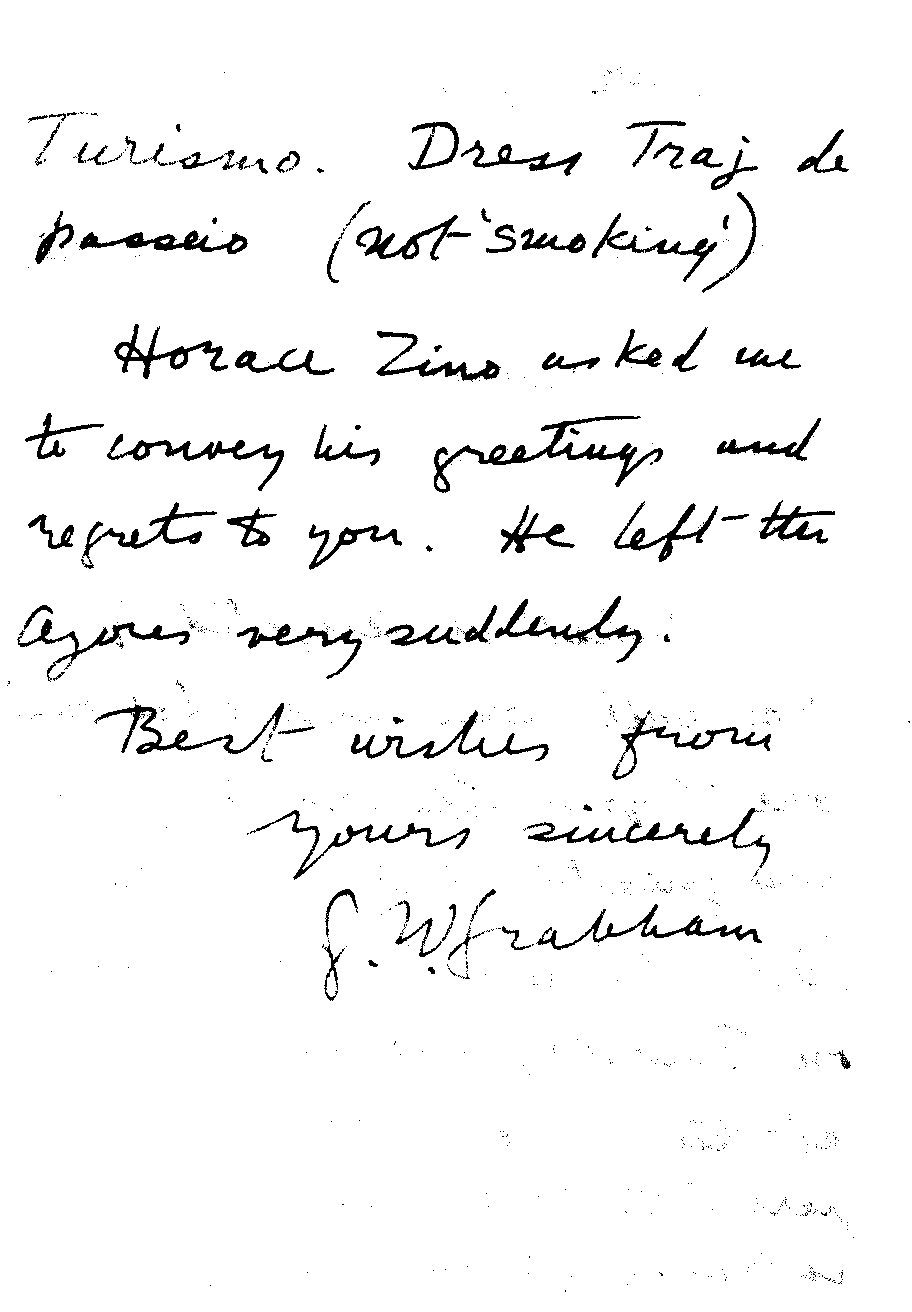 Turismo. Dress Traj de
passeio (not 'smoking')
Horace Zino asked me
to convey his greetings and
regrets to you. He left the
Azores very suddenly.
Best wishes from
yours sincerely
G. W. Grabham